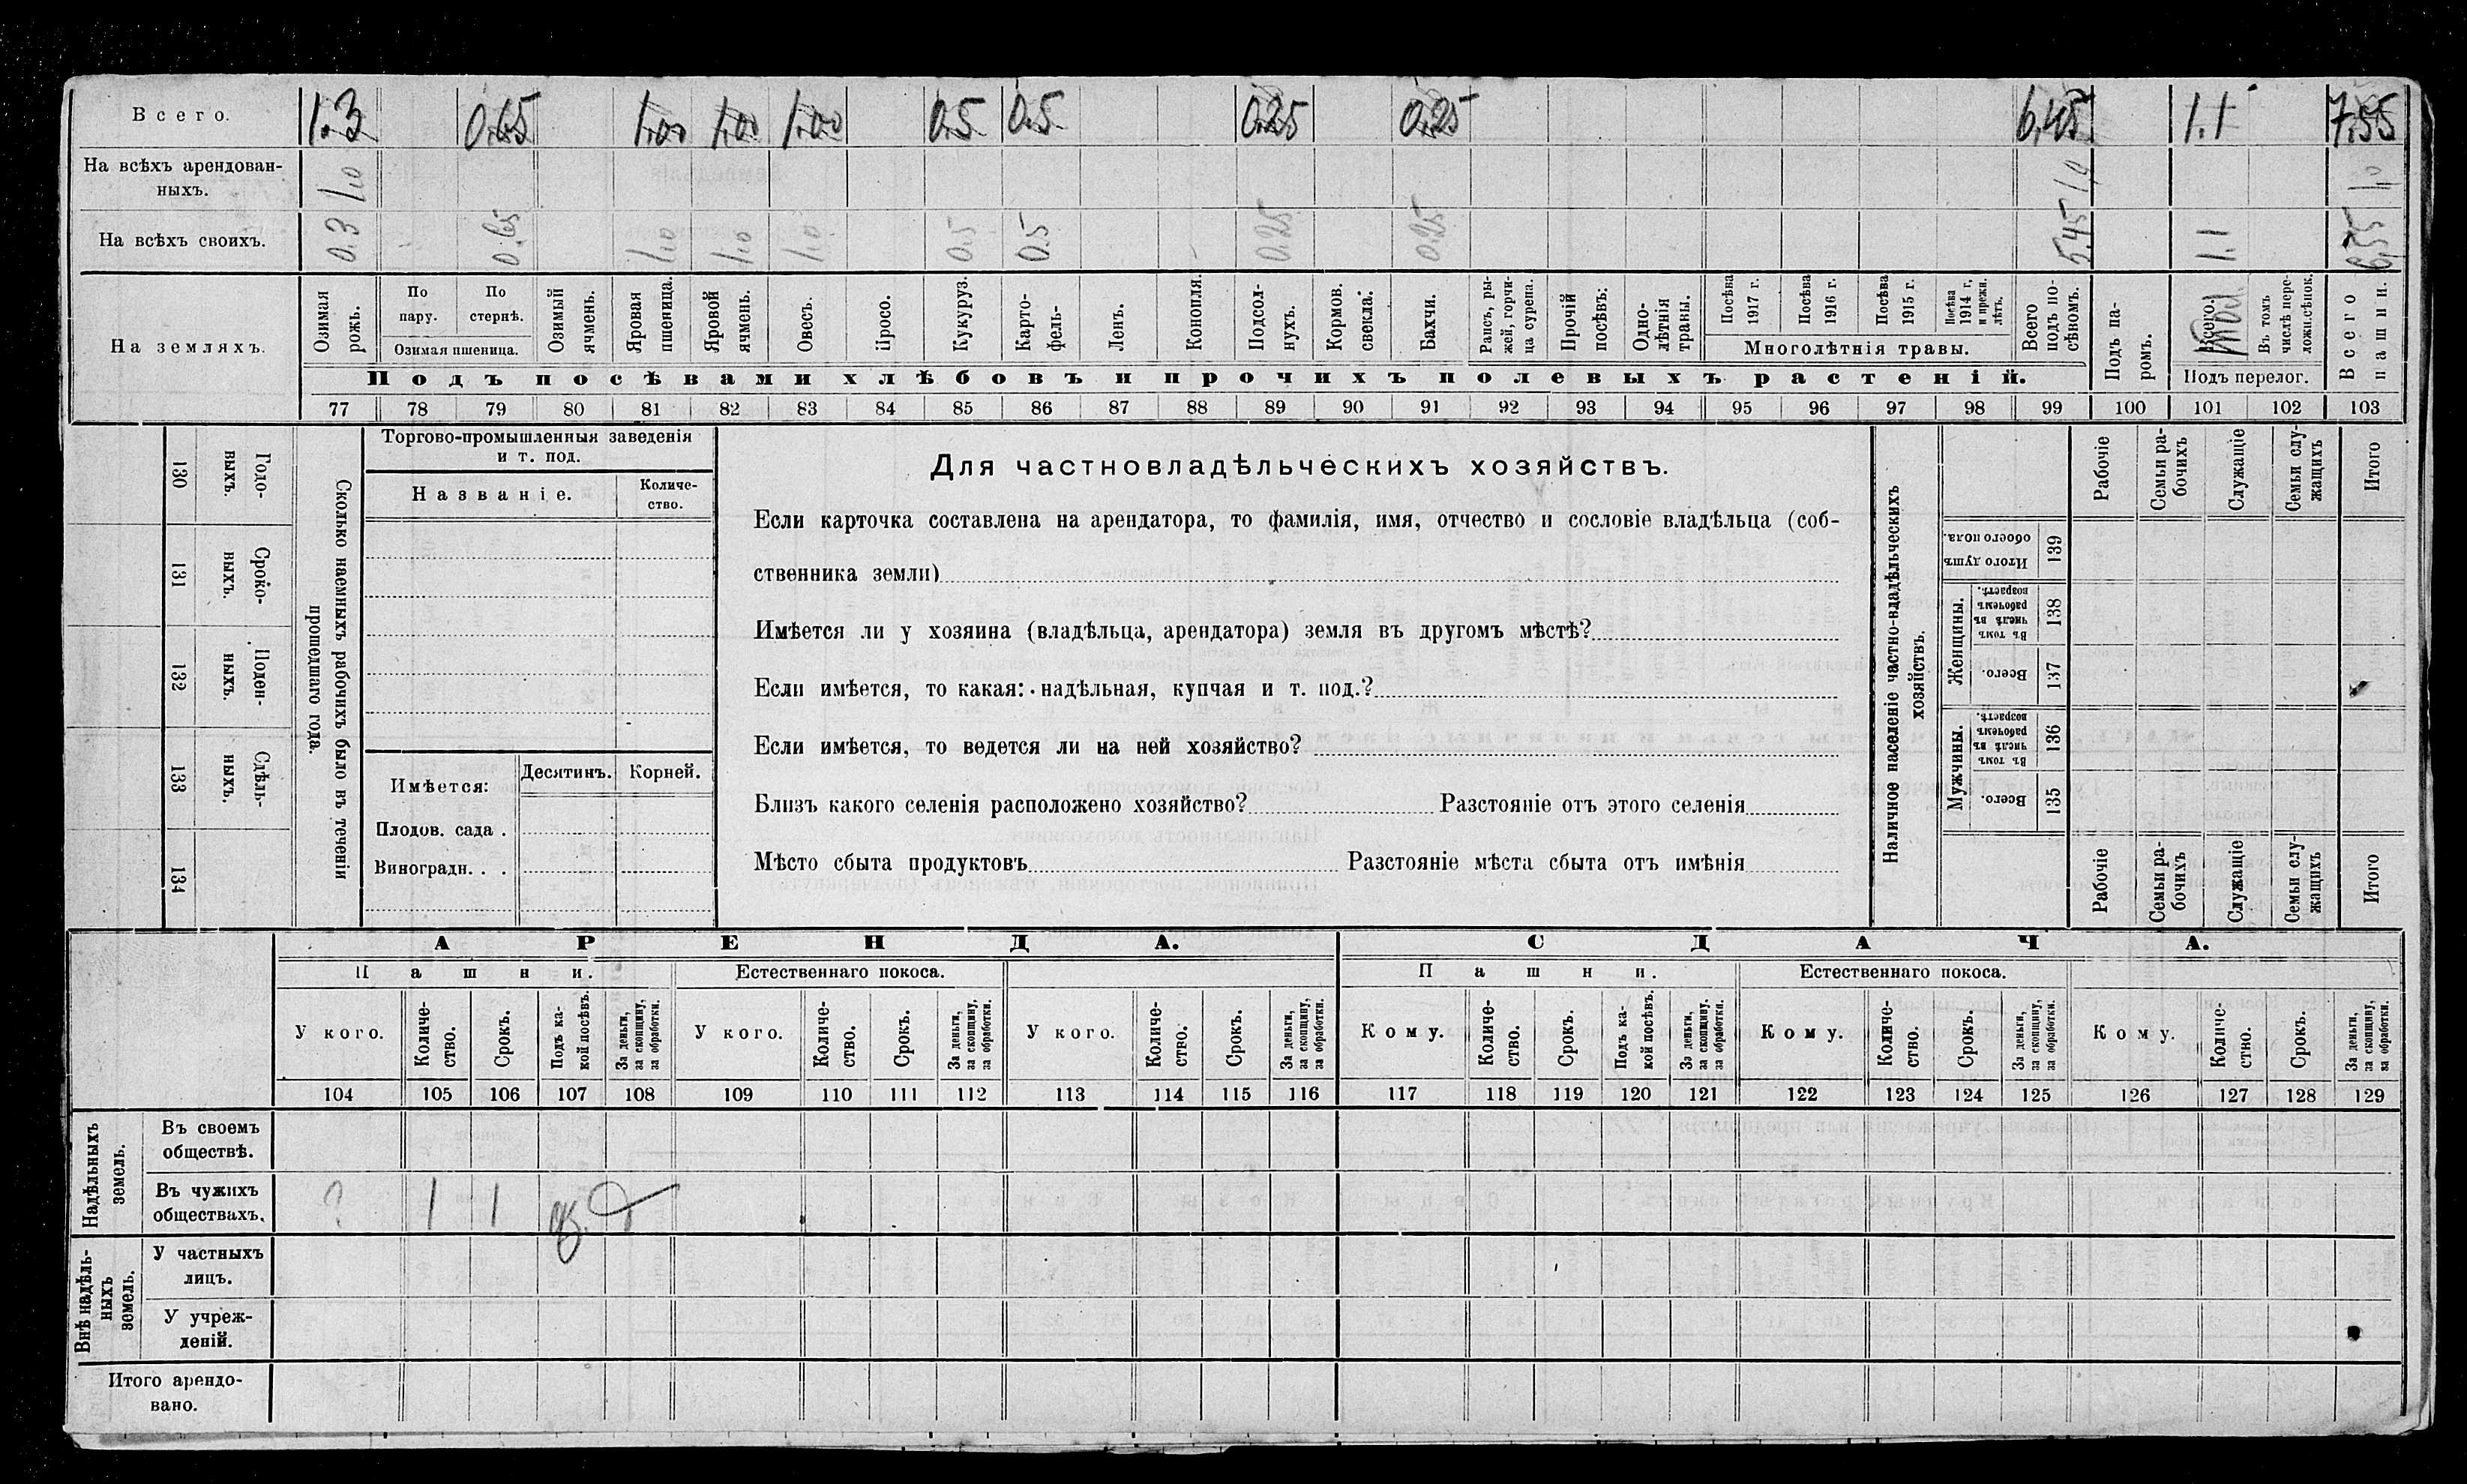 Всего. 1.3 0.65 1.00 1.00 1.00 0.5 0.5 0.25 0.25 6,45 1.1 7.55
На всѣхъ арендован-
ныхъ. 1.0 1.0 1.0
На всѣхъ своихъ. 0.3 0.65 1.0 1.0 1.0 0.5 0.5 0.25 0.25 5.45 1.1 6.55
На земляхъ.
Озимая рожь.
По пару.
По стернѣ.
Озимая пшеница.
Озимый ячмень.
Яровая пшеница.
Яровой ячмень.
Овесъ.
Просо.
Кукуруз.
Карто-
фель-
Ленъ.
Конопля.
Подсол-
нухъ.
Кормов.
свекла.
Бахчи.
Рапсъ, ры-
жей, горчи-
ца сурепа.
Прочій
посѣвъ:
Одно-
лѣтнія
травы.
Посѣва
1917 г.
Посѣва
1916 г.
Посѣва
1915 г.
Посѣва
1914 г,
и прежн.
лѣтъ.
Многолѣтнія травы.
Всего
подъ по-
сѣвомъ.
Подъ па-
ромъ.
Всего.
Въ томъ
числѣ пере-
ложн.сѣнок.
Подъ перелог.
Всего
пашни.
Подъ посѣвами хлѣбовъ и прочихъ полевыхъ растеній.
77 78 79 80 81 82 83 84 85 86 87 88 89 90 91 92 93 94 95 96 97 98 99 100 101 102 103
130 Годо-
выхъ.
131 Сроко-
выхъ.
132 Поден-
ныхъ.
133 Сдѣль-
ныхъ.
134
Сколько наемныхъ рабочихъ было въ теченіи
прошедшаго года.
Торгово-промышленныя заведенія
и т. под.
Названіе.
Количе-
ство.
Имѣется:
Десятинъ. Корней.
Плодов. сада .
Виноградн. . .
Для частновладѣльческихъ хозяйствъ.
Если карточка составлена на арендатора, то фамилія, имя, отчество и сословіе владѣльца (соб-
ственника земли)
Имѣется ли у хозяина (владѣльца, арендатора) земля въ другомъ мѣстѣ?
Если имѣется, то какая: надѣльная, купчая и т. под.?
Если имѣется, то ведется ли на ней хозяйство?
Близъ какого селенія расположено хозяйство? Разстояніе отъ этого селенія
Мѣсто сбыта продуктовъ Разстояніе мѣста сбыта отъ имѣнія
Наличное населеніе частно-владѣльческихъ
хозяйствъ.
Рабочіе
Семьи ра-
бочихъ
Служащіе
Семьи слу-
жащихъ
Итого
Итого душъ
обоего пола.
139
Женщины.
Въ томъ
числѣ въ
рабочемъ
возрастѣ.
138
Всего.
137
Мужчины.
Въ томъ
числѣ въ
рабочемъ
возрастѣ.
136
Всего.
135
Рабочіе
Семьи ра-
бочихъ
Служащіе
Семьи слу-
жащихъ
Итого
АРЕНДА. СДАЧА.
Пашни. Естественнаго покоса. Пашни. Естественнаго покоса.
У кого.
Количе-
ство.
Срокъ.
Подъ ка-
кой посѣвъ.
За деньги,
за скопщину,
за обработки.
У кого.
Количе-
ство.
Срокъ.
За деньги,
за скопщину,
за обработки.
У кого.
Количе-
ство.
Срокъ.
За деньги,
за скопщину,
за обработки.
Кому.
Количе-
ство.
Срокъ.
Подъ ка-
кой посѣвъ.
За деньги,
за скопщину,
за обработки.
Кому.
Количе-
ство.
Срокъ.
За деньги,
за скопщину,
за обработки.
Кому.
Количе-
ство.
Срокъ.
За деньги,
за скопщину,
за обработки.
104 105 106 107 108 109 110 111 112 113 114 115 116 117 118 119 120 121 122 123 124 125 126 127 128 129
Надѣльныхъ
земель.
Въ своемъ
обществѣ.
Въ чужихъ
обществахъ. ? 1 1
Внѣ надѣль-
ныхъ
земель.
У частныхъ
лицъ.
У учреж-
деній.
Итого арендо-
вано.